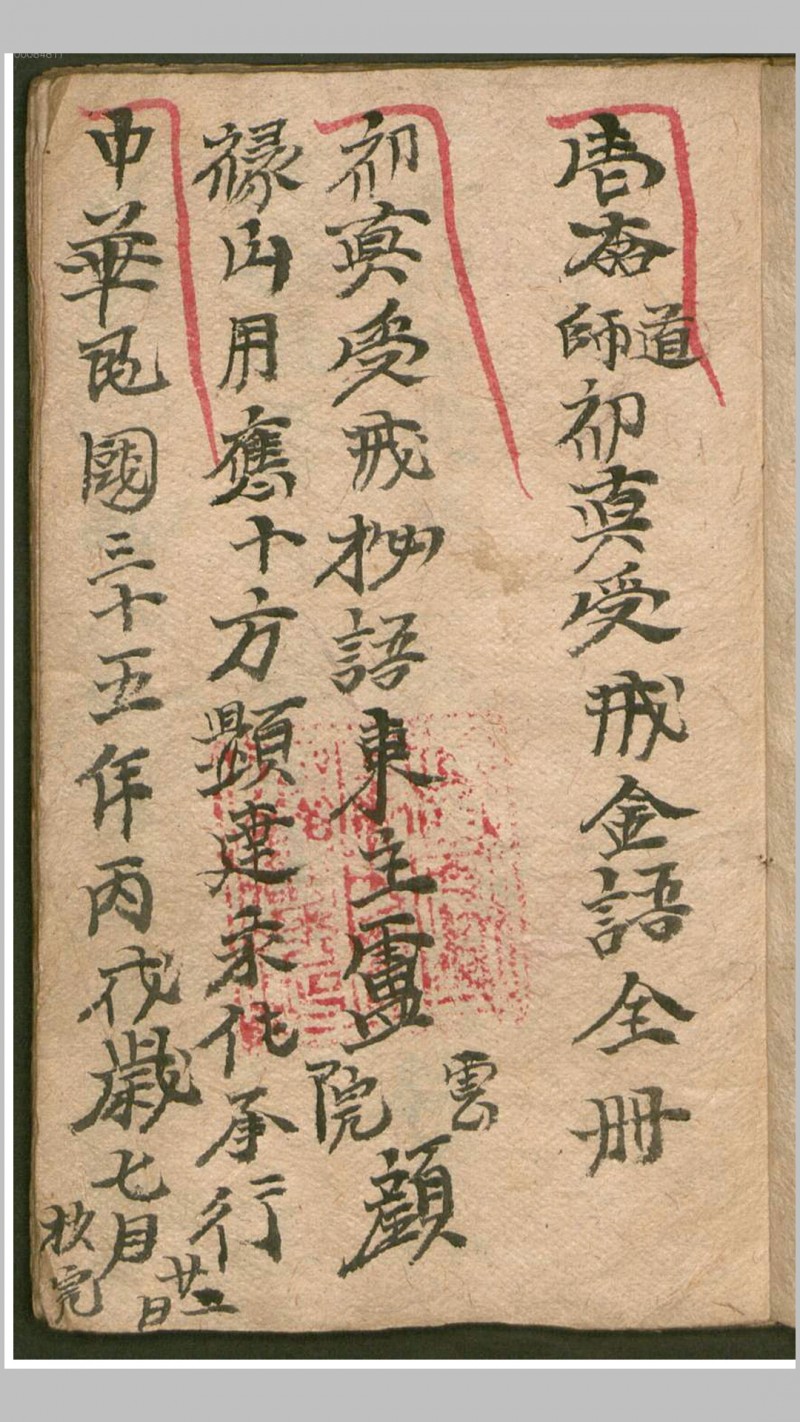 書斎道師初真受戒金語全冊
初真受戒秘語東主盧雲院顏
禄山用應十方顕達永代承行
中華民國三十五年丙戌歲七月廿二日抄完